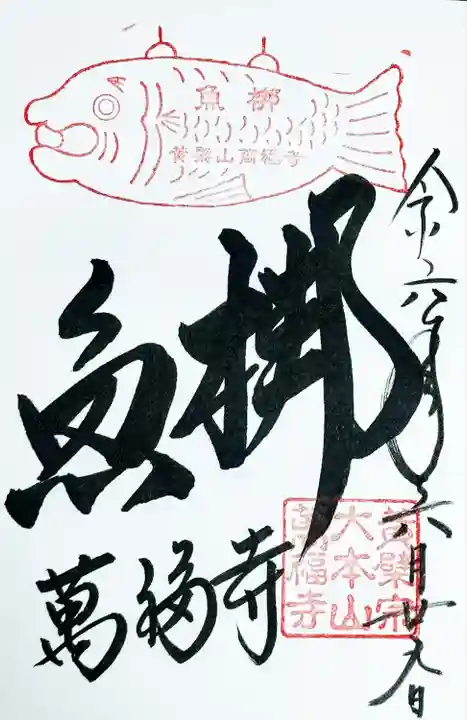 魚梆
黄檗山萬福寺
令和六年六月廿九日
魚梆
萬福寺
黄檗宗
大本山
萬福寺